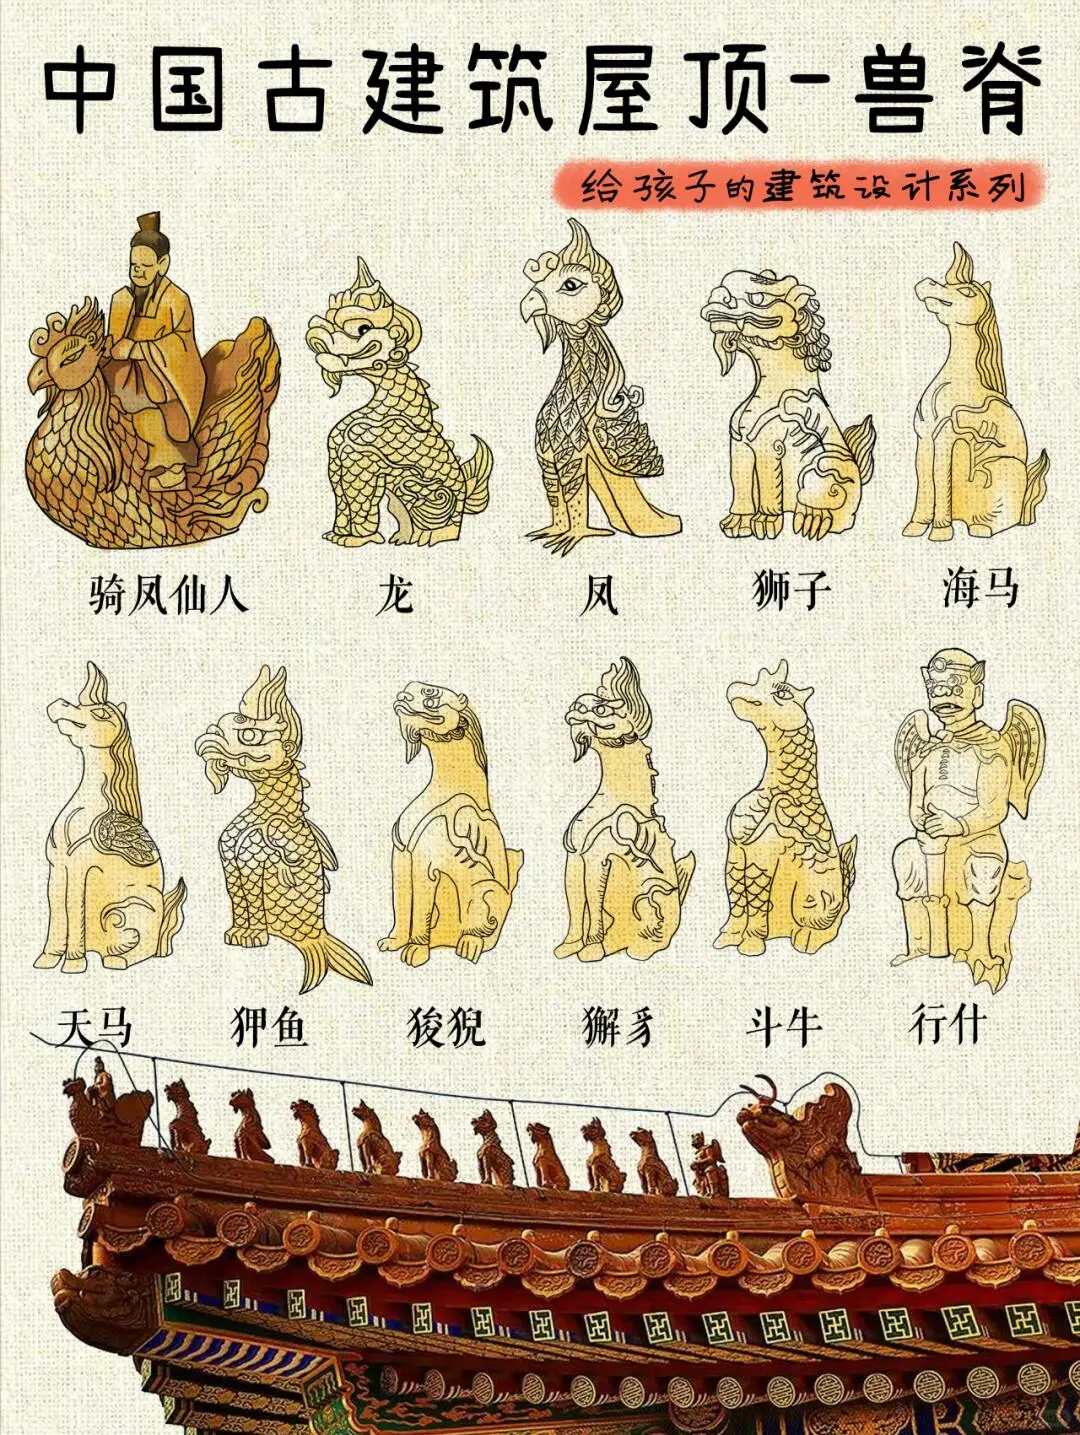 中国古建筑屋顶-兽脊
给孩子的建筑设计系列
骑凤仙人 龙 凤 狮子 海马
天马 狎鱼 狻猊 獬豸 斗牛 行什